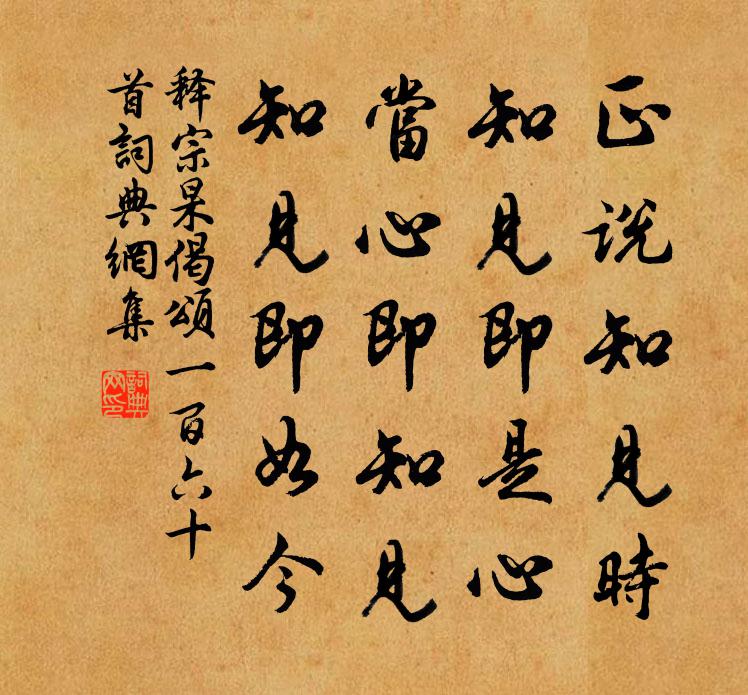 正说知見時
知見即是心
當心即知見
知見即如今
释宗杲偈頌一百六十
首詞典網集
詞典网印